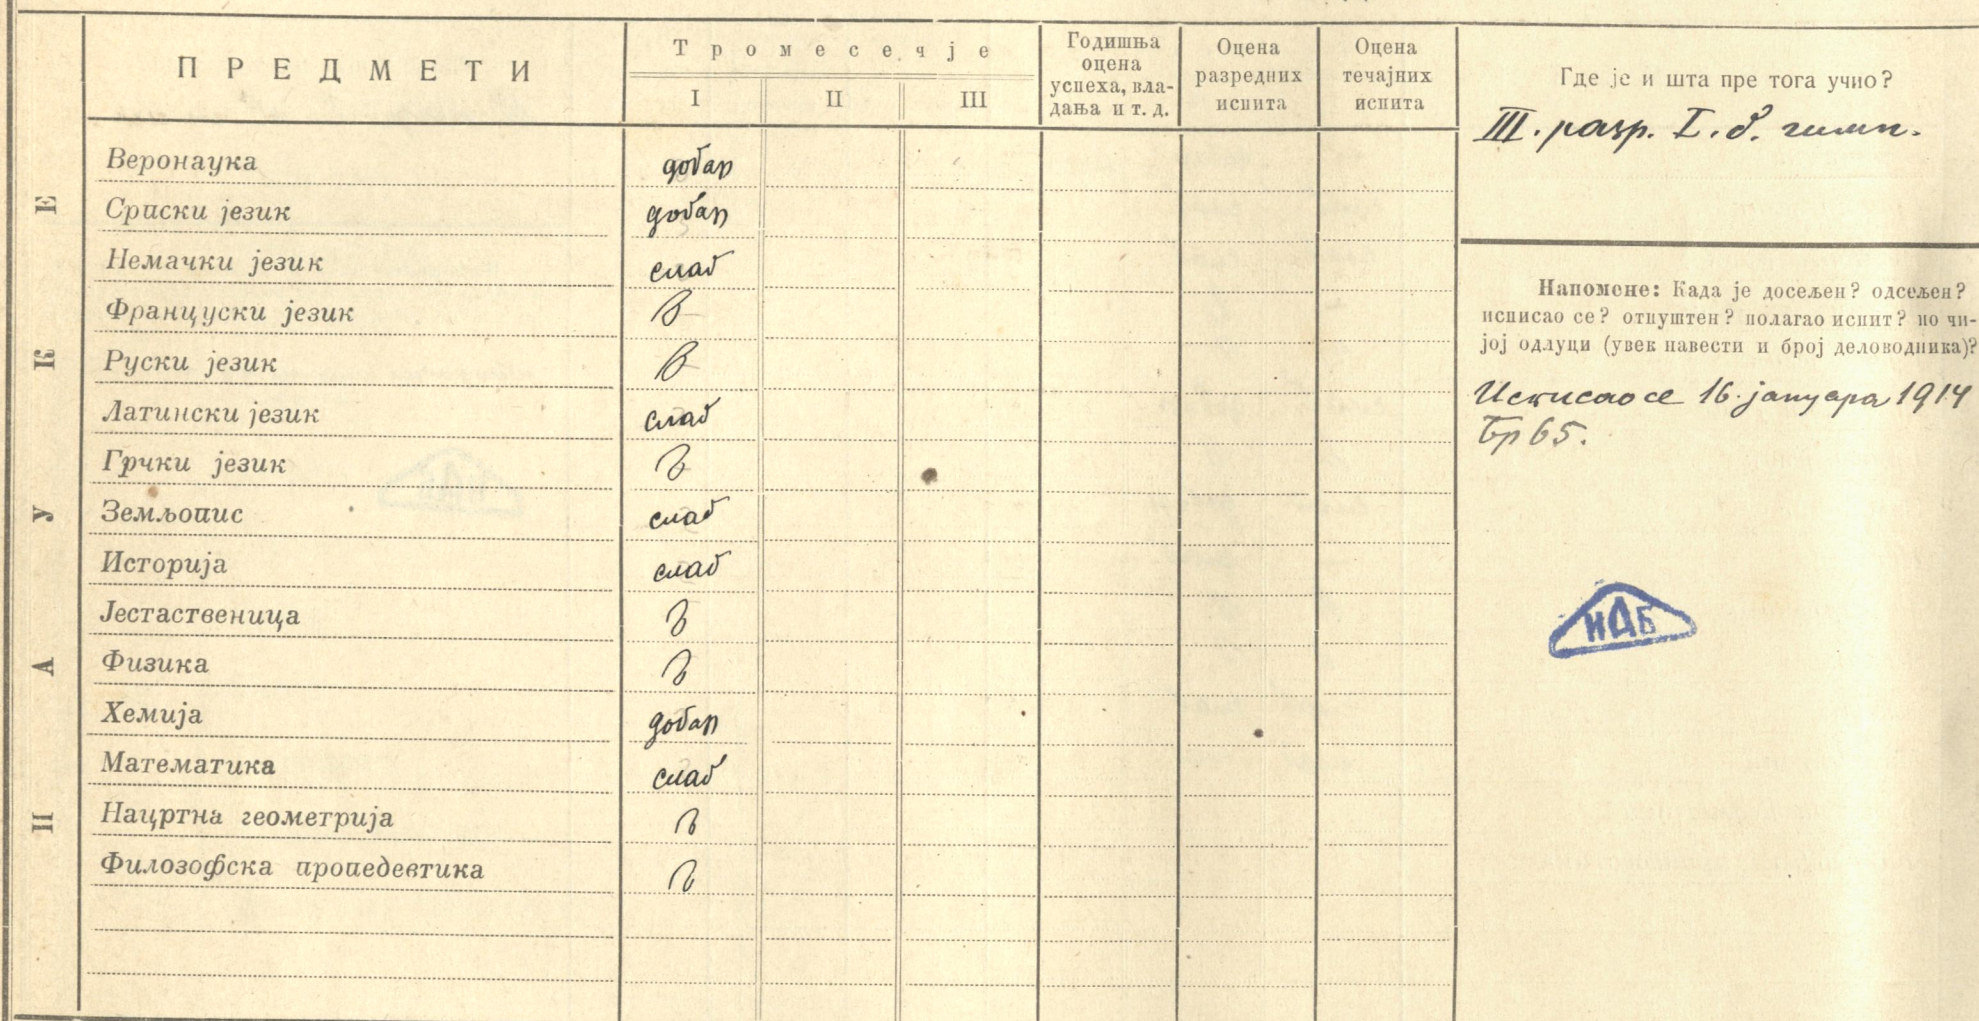 НАУКЕ
ПРЕДМЕТИ
Тромесечје
I II III
Годишња
оцена
успеха, вла-
дања и т. д.
Оцена
разредних
испита
Оцена
течајних
испита
Веронаука добар
Српски језик добар
Немачки језик слаб
Француски језик
Руски језик
Латински језик слаб
Грчки језик
Земљопис слаб
Историја слаб
Јестаственица
Физика
Хемија добар
Математика слаб
Нацртна геометрија
Филозофска пропедевтика
Где је и шта пре тога учио?
III. разр. I. б. гимн.
Напомене: Када је досељен? одсељен?
исписао се? отпуштен? полагао испит? по чи-
јој одлуци (увек навести и број деловодника)?
Исписао се 16. јануара 1914
Бр 65.
ИАБ